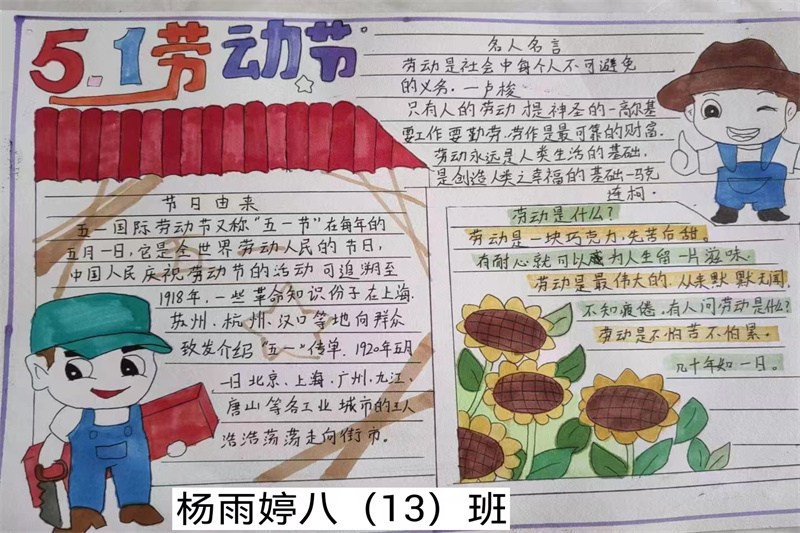 5.1劳动节
名人名言
劳动是社会中每个人不可避免
的义务.一卢梭
只有人的劳动才是神圣的一高尔基
要工作要勤劳.劳作是最可靠的财富.
劳动永远是人类生活的基础,
是创造人类之幸福的基础一马克
连柯.
节日由来
五一国际劳动节又称“五一节”在每年的
五月一日,它是全世界劳动人民的节日,
中国人民庆祝劳动节的活动可追溯至
1918年.一些革命知识份子在上海.
苏州、杭州、汉口等地向群众
致发介绍“五一”传单.1920年五月
一日北京、上海.广州.九江、
唐山等各工业城市的工人
浩浩荡荡走向街市.
劳动是什么?
劳动是一块巧克力,先苦后甜。
有耐心就可以成为人生留一片滋味.
劳动是最伟大的.从来默默无闻.
不知疲倦.有人问劳动是什么?
劳动是不怕苦不怕累.
几十年如一日。
杨雨婷八（13）班